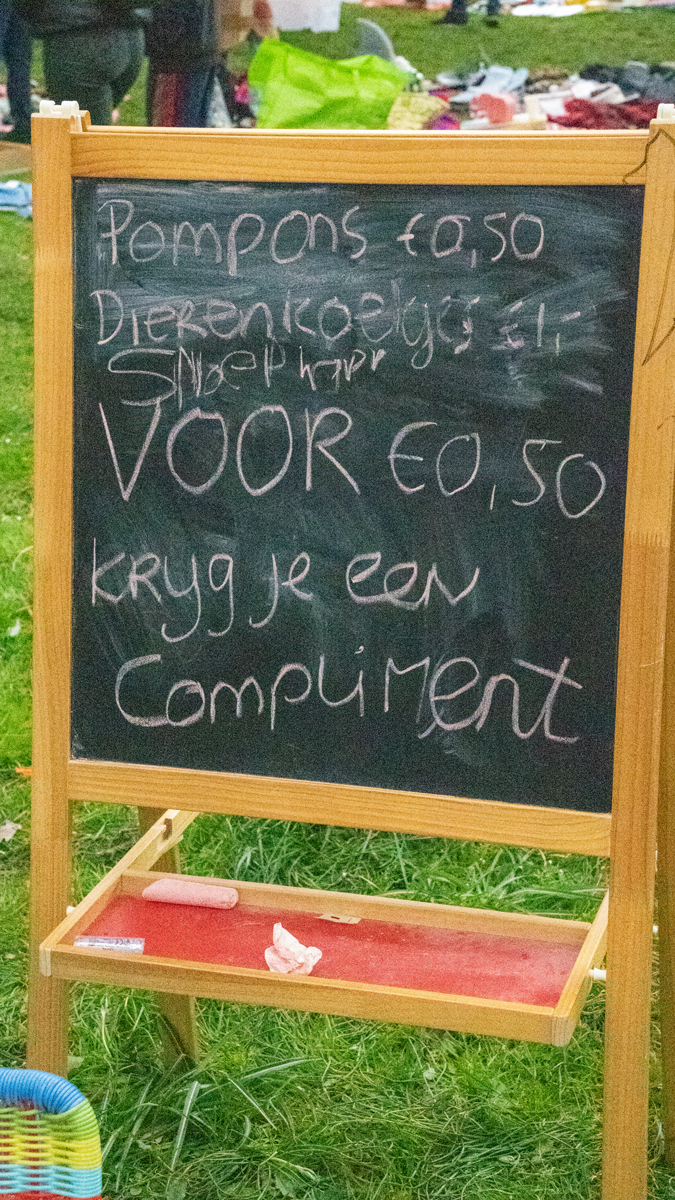 Pompons €0,50
Dierenkoekjes €1,-
Snoep
VOOR €0,50
kryg je een
Compliment